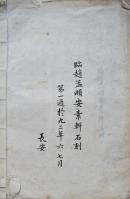 臨趙孟頫安素軒石刻
第一通於九二年六七月
長安